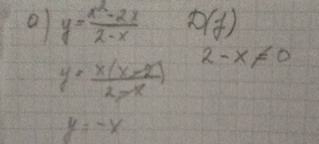 а) y = (x² - 2x)/(2 - x)
D(y)
2 - x ≠ 0
y = x(x - 2)/(2 - x)
y = -x